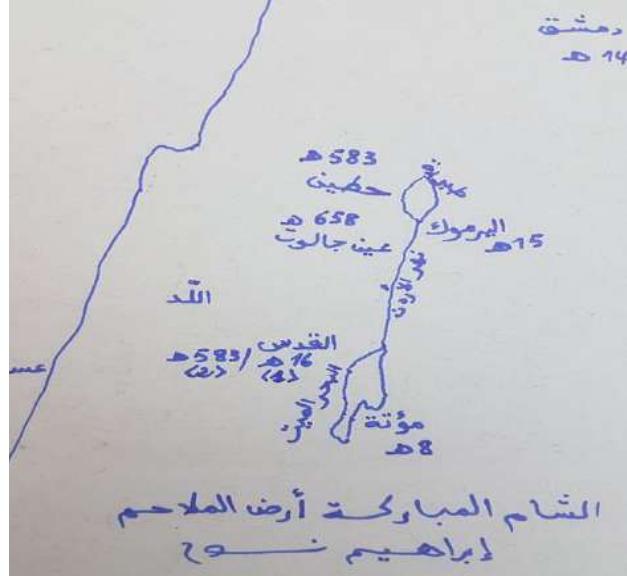 دمشق
14 هـ
583 هـ
حطين
طبرية
658 هـ
عين جالوت
اليرموك
15 هـ
نهر الأردن
اللّد
القدس
16 هـ / 583 هـ
<1> <2>
البحر الميت
عسـ
مؤتة
8 هـ
الشام المباركة أرض الملاحم
إبراهيم نــوح